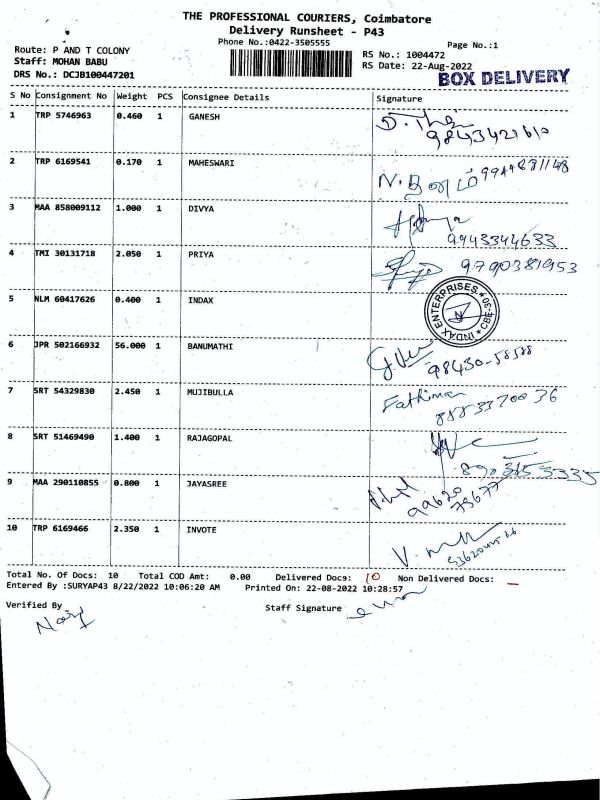 THE PROFESSIONAL COURIERS, Coimbatore
Delivery Runsheet - P43
Phone No.:0422-3505555
Page No.:1
Route: P AND T COLONY
RS No.: 1004472
Staff: MOHAN BABU
RS Date: 22-Aug-2022
DRS No.: DCJB100447201
BOX DELIVERY
S No Consignment No Weight PCS Consignee Details Signature
1 TRP 5746963 0.460 1 GANESH
9843421610
2 TRP 6169541 0.170 1 MAHESWARI
3 MAA 858009112 1.000 1 DIVYA
9943344633
4 TMI 30131718 2.050 1 PRIYA
9790381953
5 NLM 60417626 0.400 1 INDAX
INDAX ENTERPRISES * CBE-30 *
6 JPR 502166932 56.000 1 BANUMATHI
98430-58588
7 SRT 54329830 2.450 1 MUJIBULLA
Fathima
8883370036
8 SRT 51469490 1.400 1 RAJAGOPAL
9 MAA 290110855 0.800 1 JAYASREE
99620
79677
10 TRP 6169466 2.350 1 INVOTE
Total No. Of Docs: 10 Total COD Amt: 0.00 Delivered Docs: 10 Non Delivered Docs: —
Entered By :SURYAP43 8/22/2022 10:06:20 AM Printed On: 22-08-2022 10:28:57
Verified By
Staff Signature